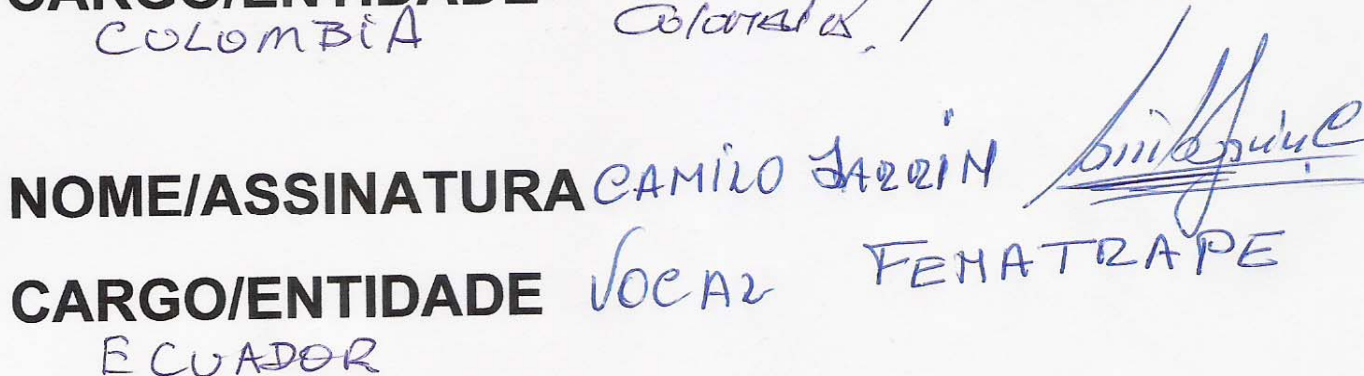 CARGO/ENTIDADE
COLOMBIA Colombia
NOME/ASSINATURA CAMILO JARRIN
CARGO/ENTIDADE VOCAL FEMATRAPE
ECUADOR